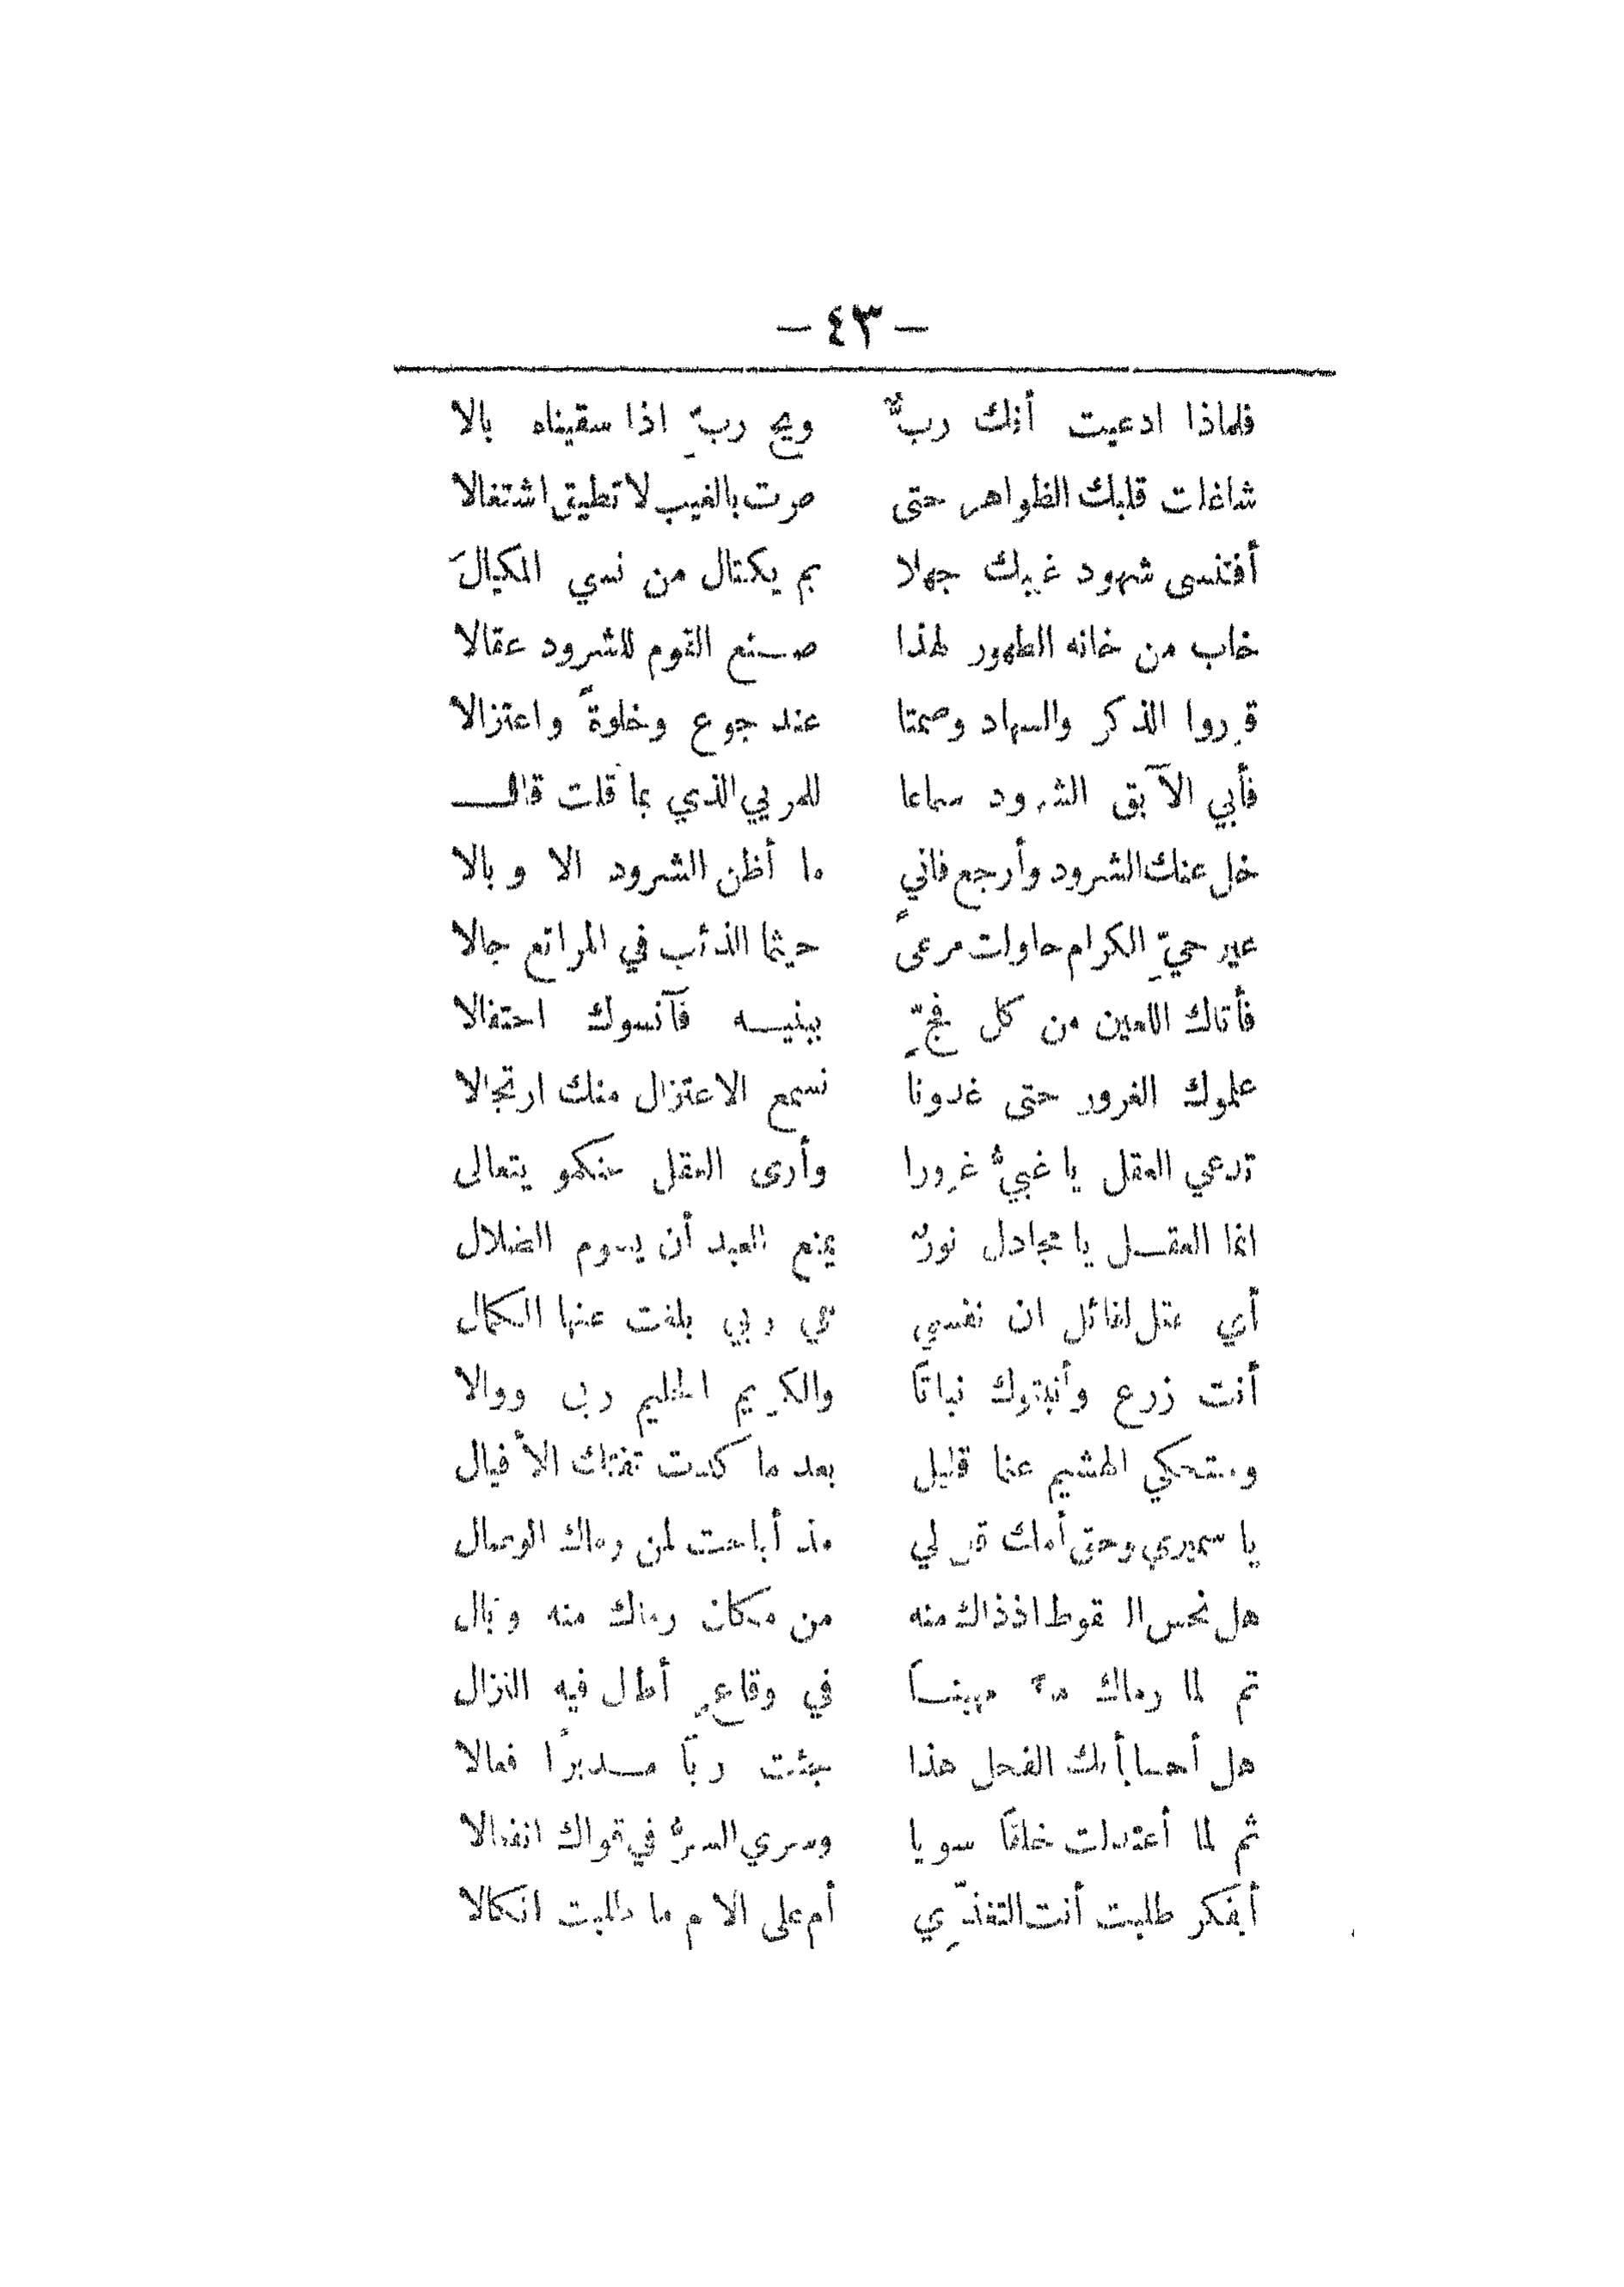 - ٤٣ -
فلماذا ادعيت أنك ربٌّ ويح ربٍّ اذا سقيناه بالا
شاغلت قلبك الظواهر حتى صرت بالغيب لا تطيق اشتغالا
أفتنسى شهود غيبك جهلا بم يكتال من نسي المكيالَ
خاب من خانه الطهور لهذا صنع القوم للشرود عقالا
قرروا الذكر والسهاد وصمتا عند جوع وخلوةً واعتزالا
فأبي الآبق الشرود سماعا للمربي الذي بما قلت قال
خل عنك الشرود وأرجع فاني ما أظن الشرود الا وبالا
غير حيِّ الكرام حاولت مرعىً حيثما الذئب في المراتع جالا
فأتاك اللعين من كل فجٍّ ببنيه فآنسوك احتفالا
علموك الغرور حتى غدونا نسمع الاعتزال منك ارتجالا
تدعي العقل يا غبيُّ غرورا وأرى العقل عنكمو يتعالى
انما العقل يا مجادل نورٌ يمنع العبد أن يسوم الضلال
أي عقل لقائل ان نفسي هي ربي بلغت عنها الكمال
أنت زرع وأنبتوك نباتاً والكريم الحليم ربى ووالا
وستحكي الهشيم عما قليل بعد ما كدت تفتك الأفيال
يا سميري وحق أمك قل لي مذ أباحت لمن رماك الوصال
هل نحس السقوط اذ ذاك منه من مكان رماك منه وبال
ثم لما رماك مهيناً في وقاعٍ أطال فيه النزال
هل أحسا بأنك الفحل هذا جئت رباً مدبراً فعالا
ثم لما أعتدلت خلقاً سويا وسرى السرُّ في قواك انفعالا
أبفكر طلبت أنت التغذِّي أم على الام ما طلبت اتكالا